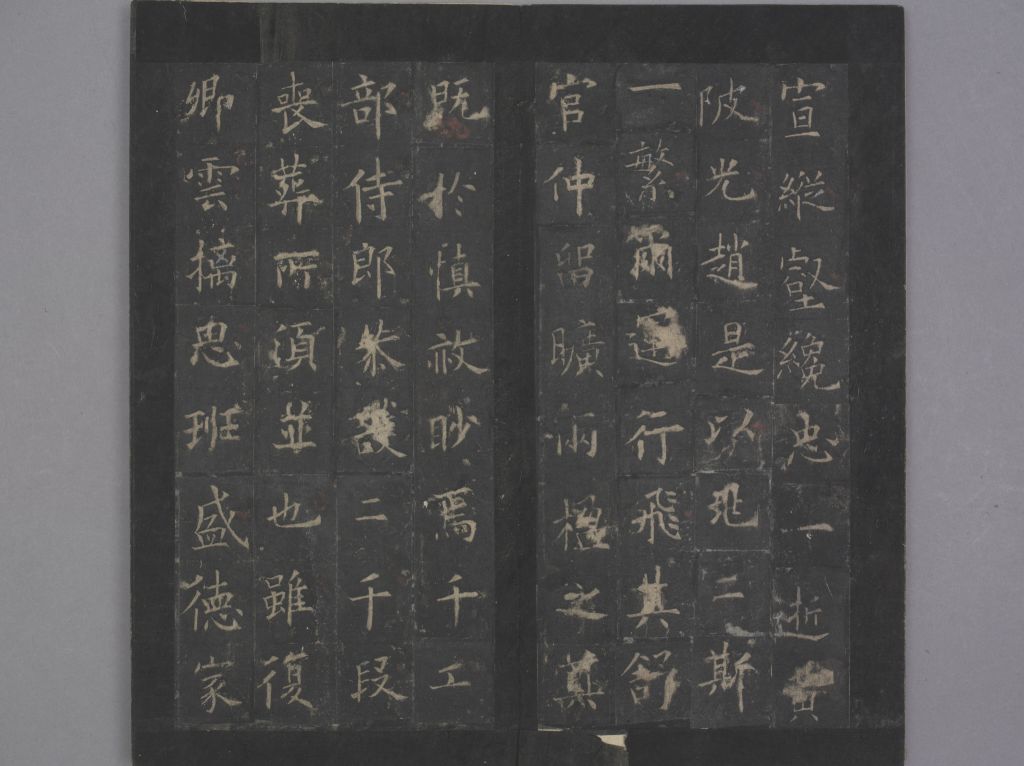 宣縱壑纔忠一逝
陂光趙是以二斯
一繁爾行飛其
官仲留曠兩楹之奠
既於慎赦眇焉千工
部侍郎二千段
喪葬所須並也雖復
卿雲摛思班盛德家